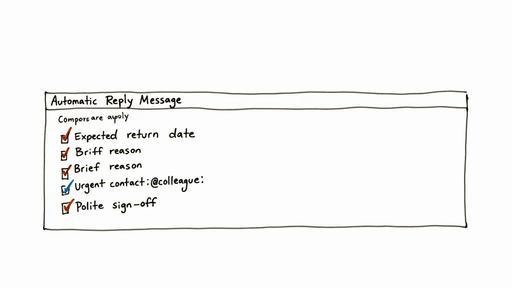 Automatic Reply Message
Compors are apoly
Expected return date
Briff reason
Brief reason
Urgent contact:@colleague:
Polite sign-off